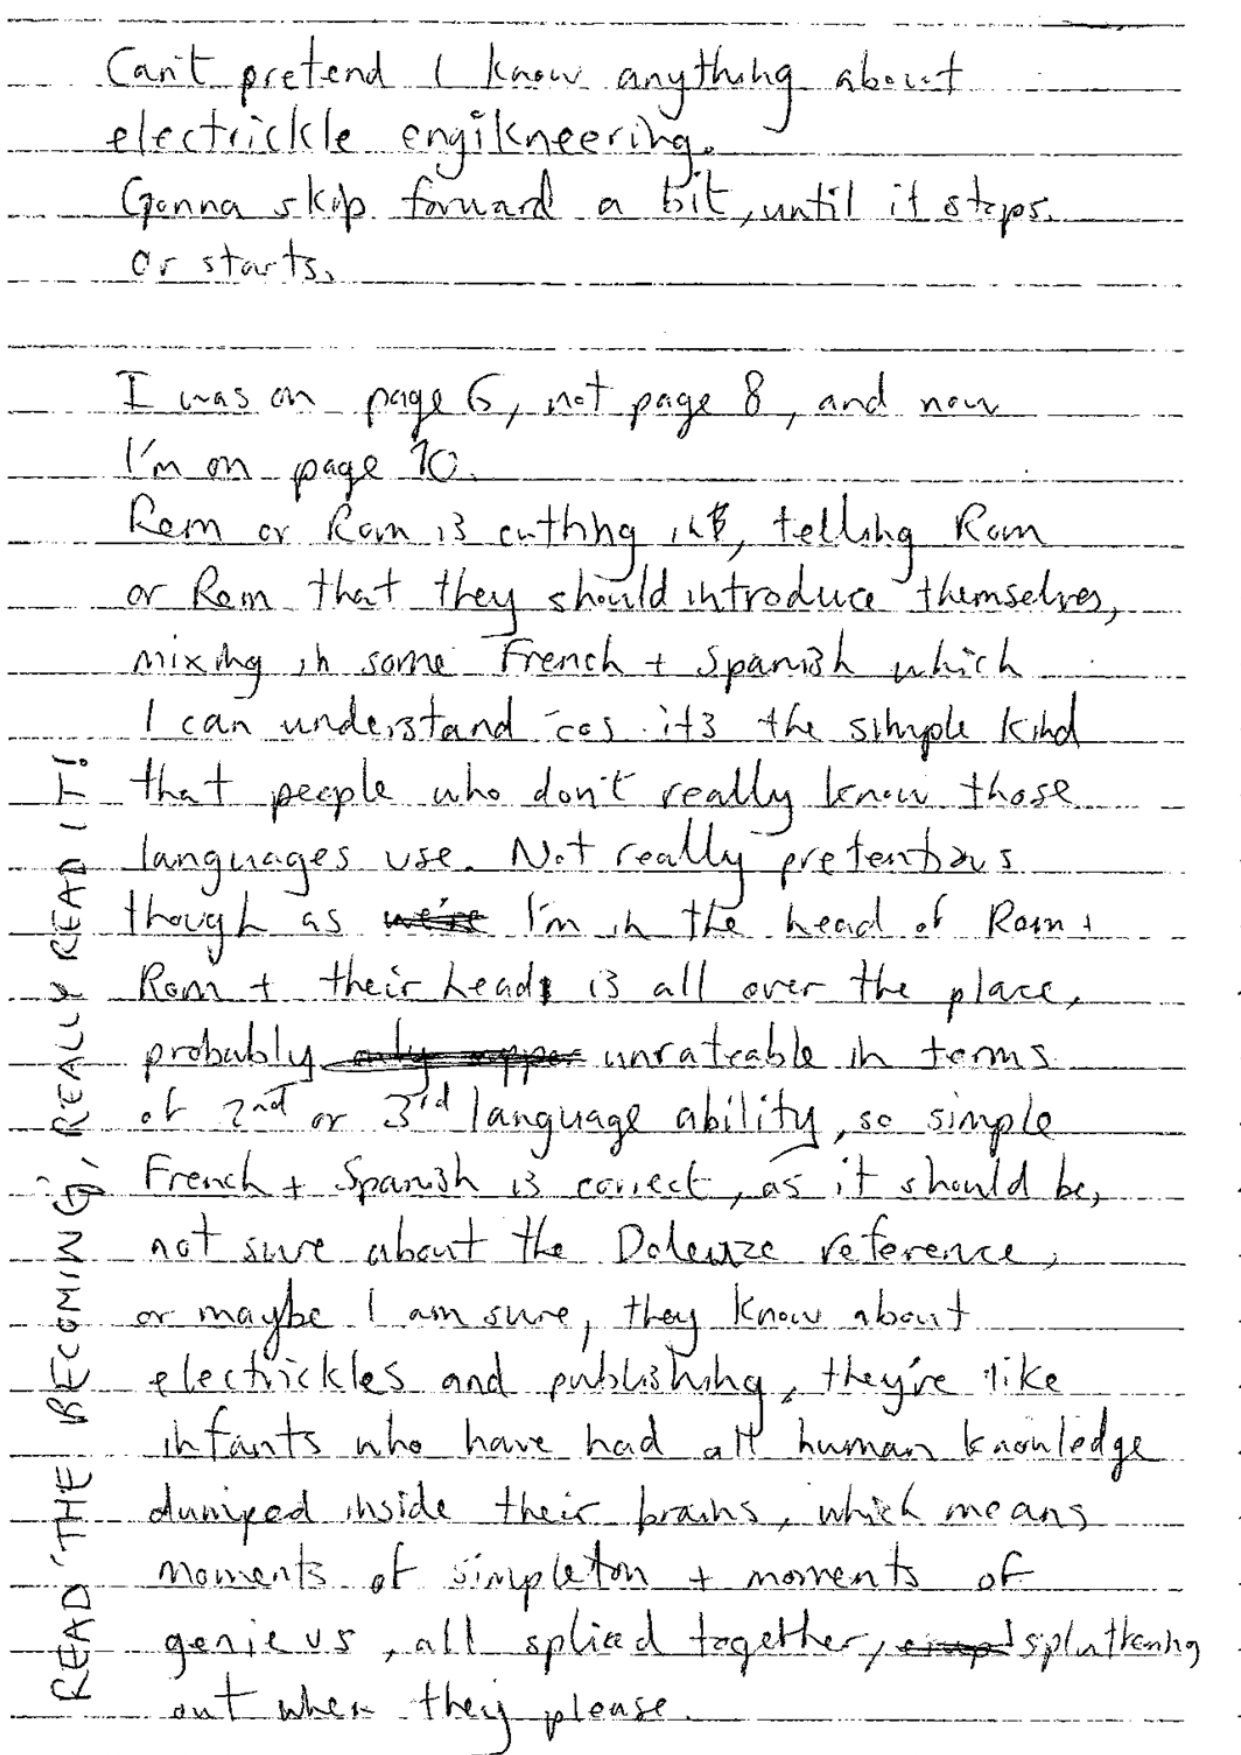 Can't pretend I know anything about
electrickle engikneering.
Gonna skip forward a bit, until it stops.
Or starts.
I was on page 6, not page 8, and now
I'm on page 10.
Rem or Rom is cutting in, telling Rom
or Rem that they should introduce themselves,
mixing in some French + Spanish which
I can understand 'cos its the simple kind
that people who don't really know those
languages use. Not really pretentious
though as I'm in the head of Rem +
Rom + their head is all over the place,
probably unrateable in terms
of 2nd or 3rd language ability, so simple
French + Spanish is correct, as it should be,
not sure about the Doleuze reference,
or maybe I am sure, they know about
electrickles and publishing, they're like
infants who have had all human knowledge
dumped inside their brains, which means
moments of simpleton + moments of
genieus, all spliced together, spluttering
out when they please.
READ 'THE BECOMING', REALLY READ IT!